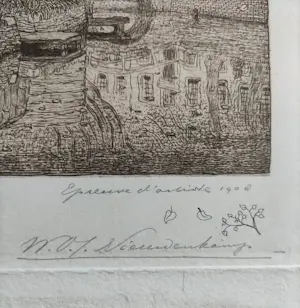 Epreuve d'artiste 1908
W.O.J. Nieuwenkamp.